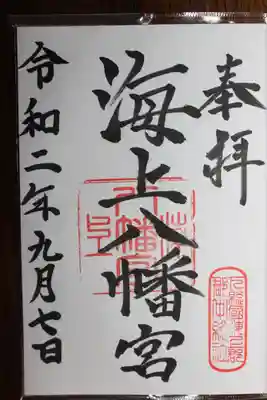 奉拝
海上八幡宮
令和二年九月七日